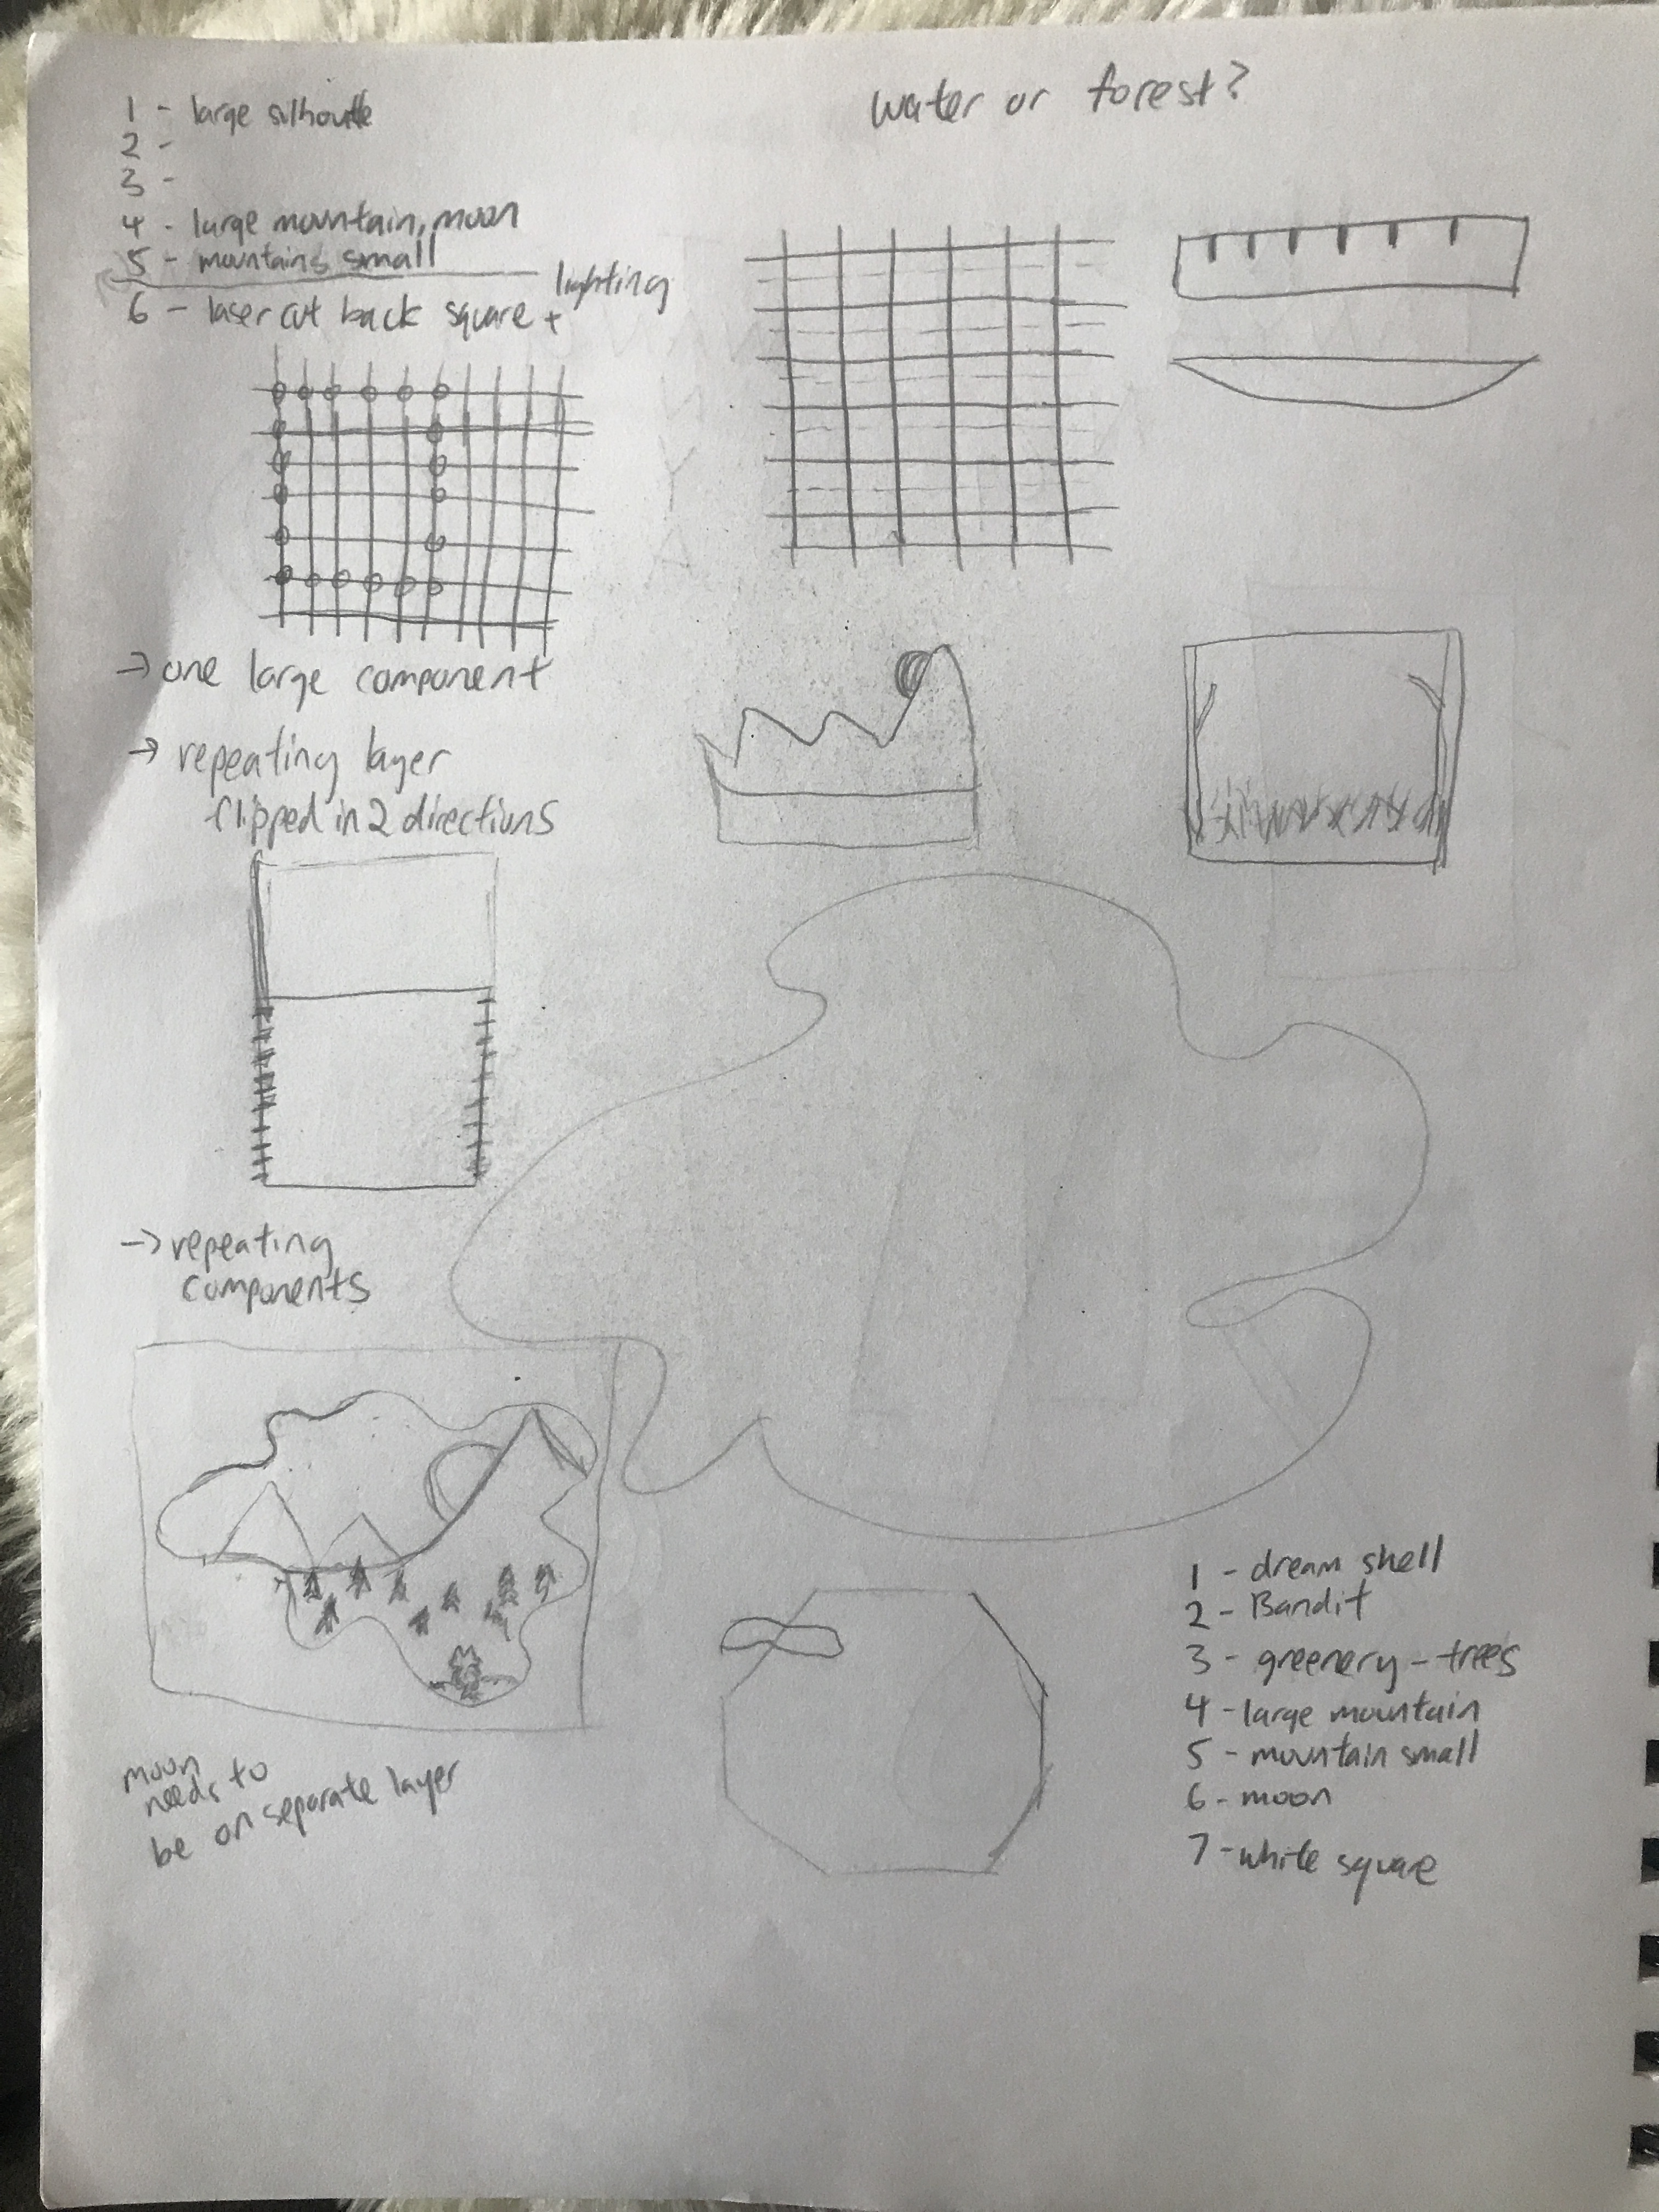 1 - large silhoutte
2 -
3 -
4 - large mountain, moon
5 - mountains small
6 - laser cut back square + lighting
water or forest?
→ one large component
→ repeating layer
flipped in 2 directions
→ repeating
components
moon
needs to
be on separate layer
1 - dream shell
2 - Bandit
3 - greenery - trees
4 - large mountain
5 - mountain small
6 - moon
7 - white square